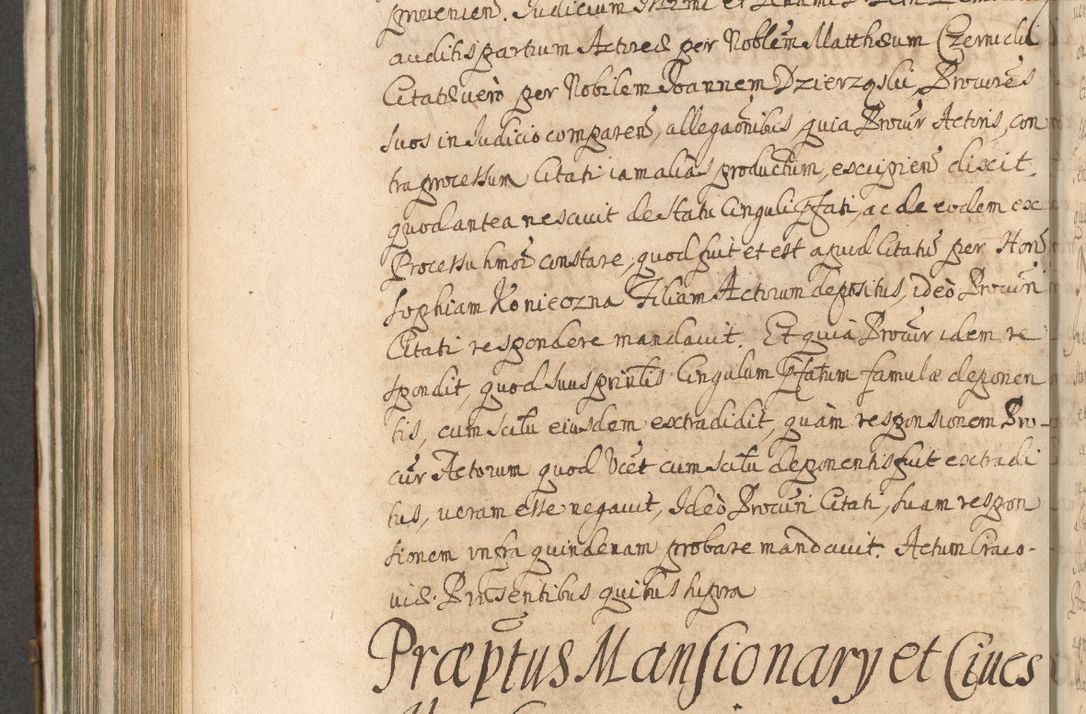 auditis partium Actoreæ per Noblēm Matthæum Czernicki
Citatæ verò per Nobilem Joannem Dzierzqski, Procurēs
suos in Judicio comparen̄, allegaōnibus, quia Procūr Actoris, con
tra processum Citati iam alias productum, excipien̄ dixit.
quod antea nescivit de statu Cinguli p̄fati, ac de eodem ex
Processu hmōi constare, quod fuit et est apud Citatū per Hon̄
Sophiam Konieczna Filiam Actorum depositus, ideò Procūri
Citati respondere mandavit. Et quià Procūr idem re
spondit, quod suus prin̄lis Cingulum p̄fatum famulæ deponen
tis, cum scitu eiusdem extradidit, quàm responsionem Pro-
cūr Actorum quod Vcēt cum scitu deponentis fuit extradi
tus, veram esse negavit, Ideò Procūri Citati, suam respon
sionem infra quindenam probare mandavit. Actum Craco-
viæ. Præsentibus quibus supra
Præpt̄us Mansionary et Cives